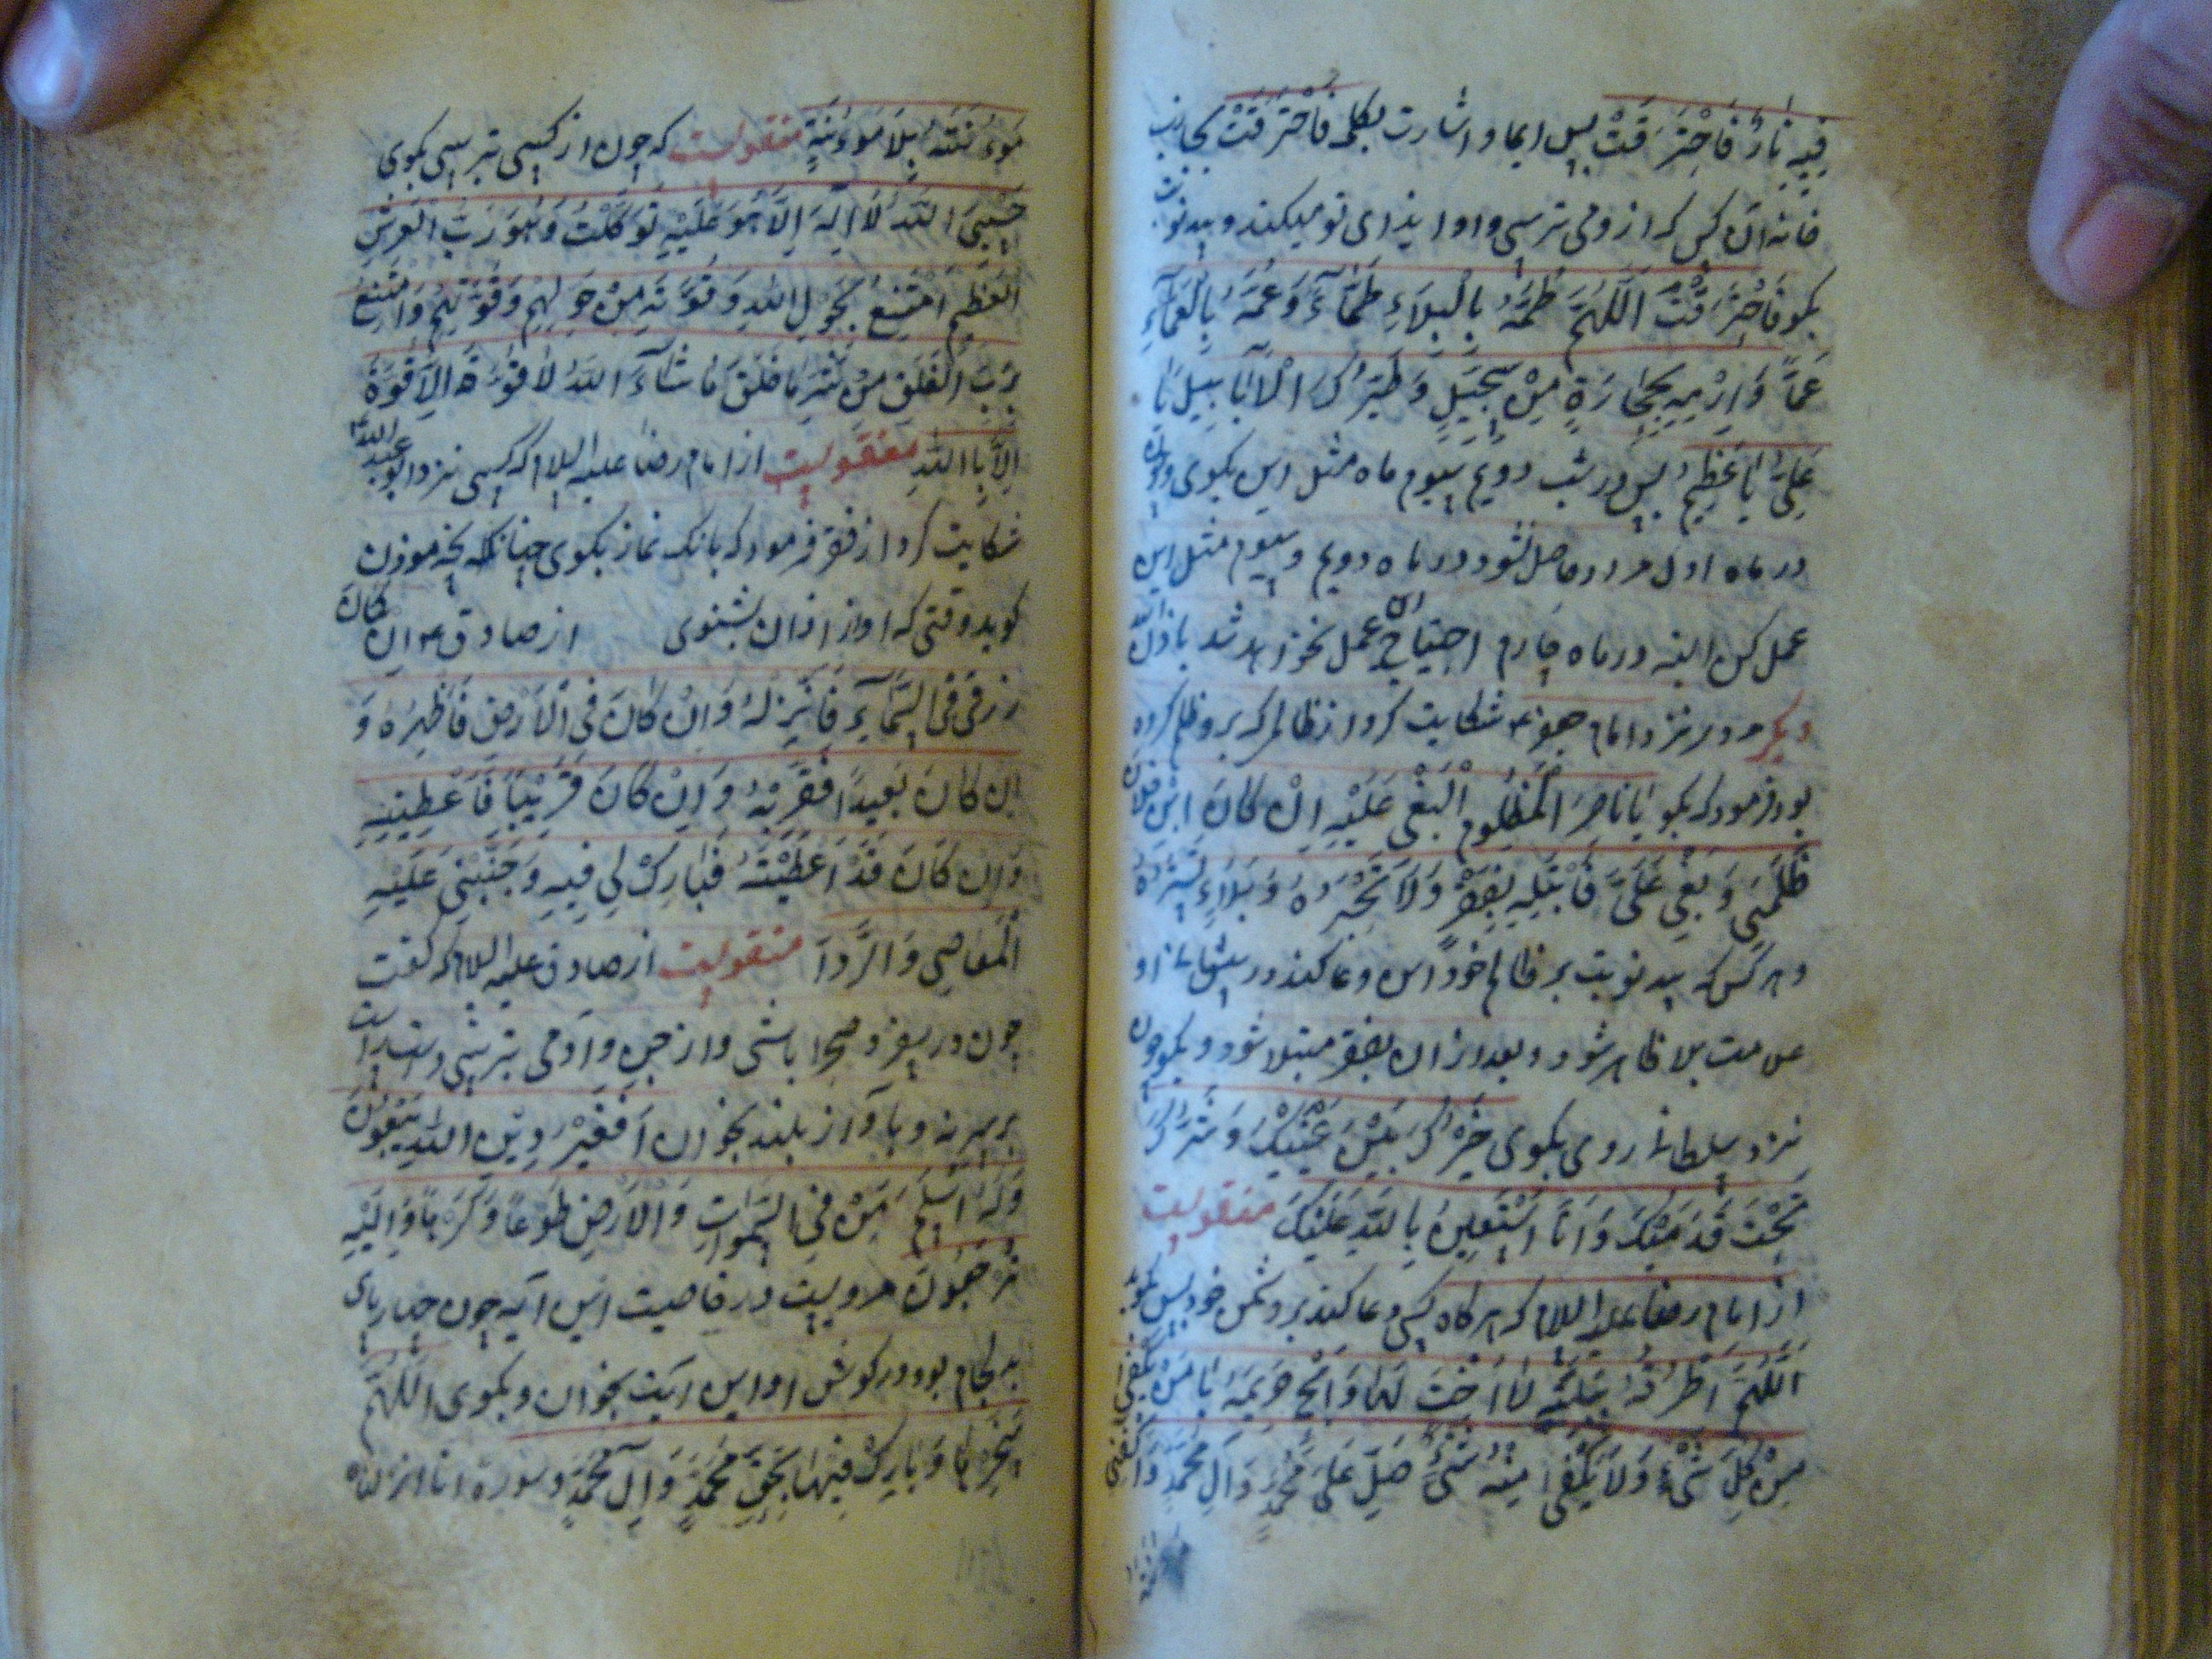 فِيهِ نَارٌ فَاحْتَرَقَتْ پس ایما و اشارت بکلمه فَاحْتَرَقَتْ بجانب
خانه ان کس که ازو می ترسی و او ایذای تو میکند و سه نوبت
بکو فَاحْتَرَقَتْ اَللّٰهُمَّ طُمَّهُ بِالْبَلَاءِ طَمًّا وَعُمَّهُ بِالْعَمَاءِ
عَمًّا وَارْمِهِ بِحِجَارَةٍ مِنْ سِجِّيلٍ وَطَيْرُكَ الْاَبَابِيلَ يَا
عَلِىُّ يَا عَظِيمُ پس در شب دویم سیوم ماه مثل این بکوی و
در ماه اول مراد حاصل نشود در ماه دویم و سیوم مثل این
عمل کن البته در ماه چارم احتیاج این عمل نخواهد شد باذن الله
دیگر مردی نزد امام جعفر شکایت کرد از ظالمی که برو ظلم کرده
بود فرمود که بکو یَا نَاصِرَ الْمَظْلُومِ الْبَغْىِ عَلَيْهِ اِنْ كَانَ ابْنَ فلان
ظَلَمَنِى وَبَغٰى عَلَىَّ فَابْتَلِهِ بِفَقْرٍ وَلَا تَجْبُرْهُ وَبَلَاءٍ تَسْتُرُهُ
و هر کس که سه نوبت بر ظالم خود این دعا کند در او
علامت بلا ظاهر شود و بعد از ان بفقر مبتلا شود و بکو چون
نزد سلطانی روی بکوی خَيْرُكَ بَيْنَ عَيْنَيْكَ وَشَرُّكَ
تَحْتَ قَدَمَيْكَ وَاَنَا اَسْتَعِينُ بِاللّٰهِ عَلَيْكَ منقولست
از امام رضا علیه السلام که هر کاه کسی دعا کند بر دشمن خود پس بکوید
اَللّٰهُمَّ اطْرُقْهُ بِبَلِيَّةٍ لَا اُخْتَ لَهَا وَاَبِحْ حَرِيمَهُ يَا مَنْ يَكْفِى
مِنْ كُلِّ شَىْءٍ وَلَا يَكْفِى مِنْهُ شَىْءٌ صَلِّ عَلٰى مُحَمَّدٍ وَآلِ مُحَمَّدٍ وَ
مَؤُنَتَهُ بِلَا مَؤُنَةٍ منقولست که چون از کسی ترسی بکوی
حَسْبِىَ اللّٰهُ لَا اِلٰهَ اِلَّا هُوَ عَلَيْهِ تَوَكَّلْتُ وَهُوَ رَبُّ الْعَرْشِ
الْعَظِيمِ اَمْتَنِعُ بِحَوْلِ اللّٰهِ وَقُوَّتِهِ مِنْ حَوْلِهِمْ وَقُوَّتِهِمْ وَاَمْتَنِعُ
بِرَبِّ الْفَلَقِ مِنْ شَرِّ مَا خَلَقَ مَا شَاءَ اللّٰهُ لَا قُوَّةَ اِلَّا قُوَّةَ
اِلَّا بِاللّٰهِ منقولست از امام رضا علیه السلام که کسی نزد ابو عبد الله
شکایت کرد از فقر فرمود که بانک نماز بکوی چنانکه مؤذن
کوید وقتی که اواز اذان بشنوی از صادق ع ان کَانَ
رِزْقِى فِى السَّمَاءِ فَاَنْزِلْهُ وَاِنْ كَانَ فِى الْاَرْضِ فَاَظْهِرْهُ وَ
اِنْ كَانَ بَعِيدًا فَقَرِّبْهُ وَاِنْ كَانَ قَرِيبًا فَاَعْطِنِيهِ
وَاِنْ كَانَ قَدْ اَعْطَيْتَهُ فَبَارِكْ لِى فِيهِ وَجَنِّبْنِى عَلَيْهِ
الْمَعَاصِى وَالرَّدَا منقولست از صادق علیه السلام که کفت
چون در سفر و صحرا باشی و از جن و آدمی ترسی دست راست
بر سر نه و بآواز بلند بخوان اَفَغَيْرَ دِينِ اللّٰهِ يَبْغُونَ
وَلَهُ اَسْلَمَ مَنْ فِى السَّمٰوَاتِ وَالْاَرْضِ طَوْعًا وَكَرْهًا وَاِلَيْهِ
تُرْجَعُونَ مرویست در خاصیت این آیه چون چارپای
بد لجام بود در کوش او این آیت بخوان و بکوی اَللّٰهُمَّ
سَخِّرْهَا وَبَارِكْ فِيهَا بِحَقِّ مُحَمَّدٍ وَآلِ مُحَمَّدٍ و سوره انا انزلناه